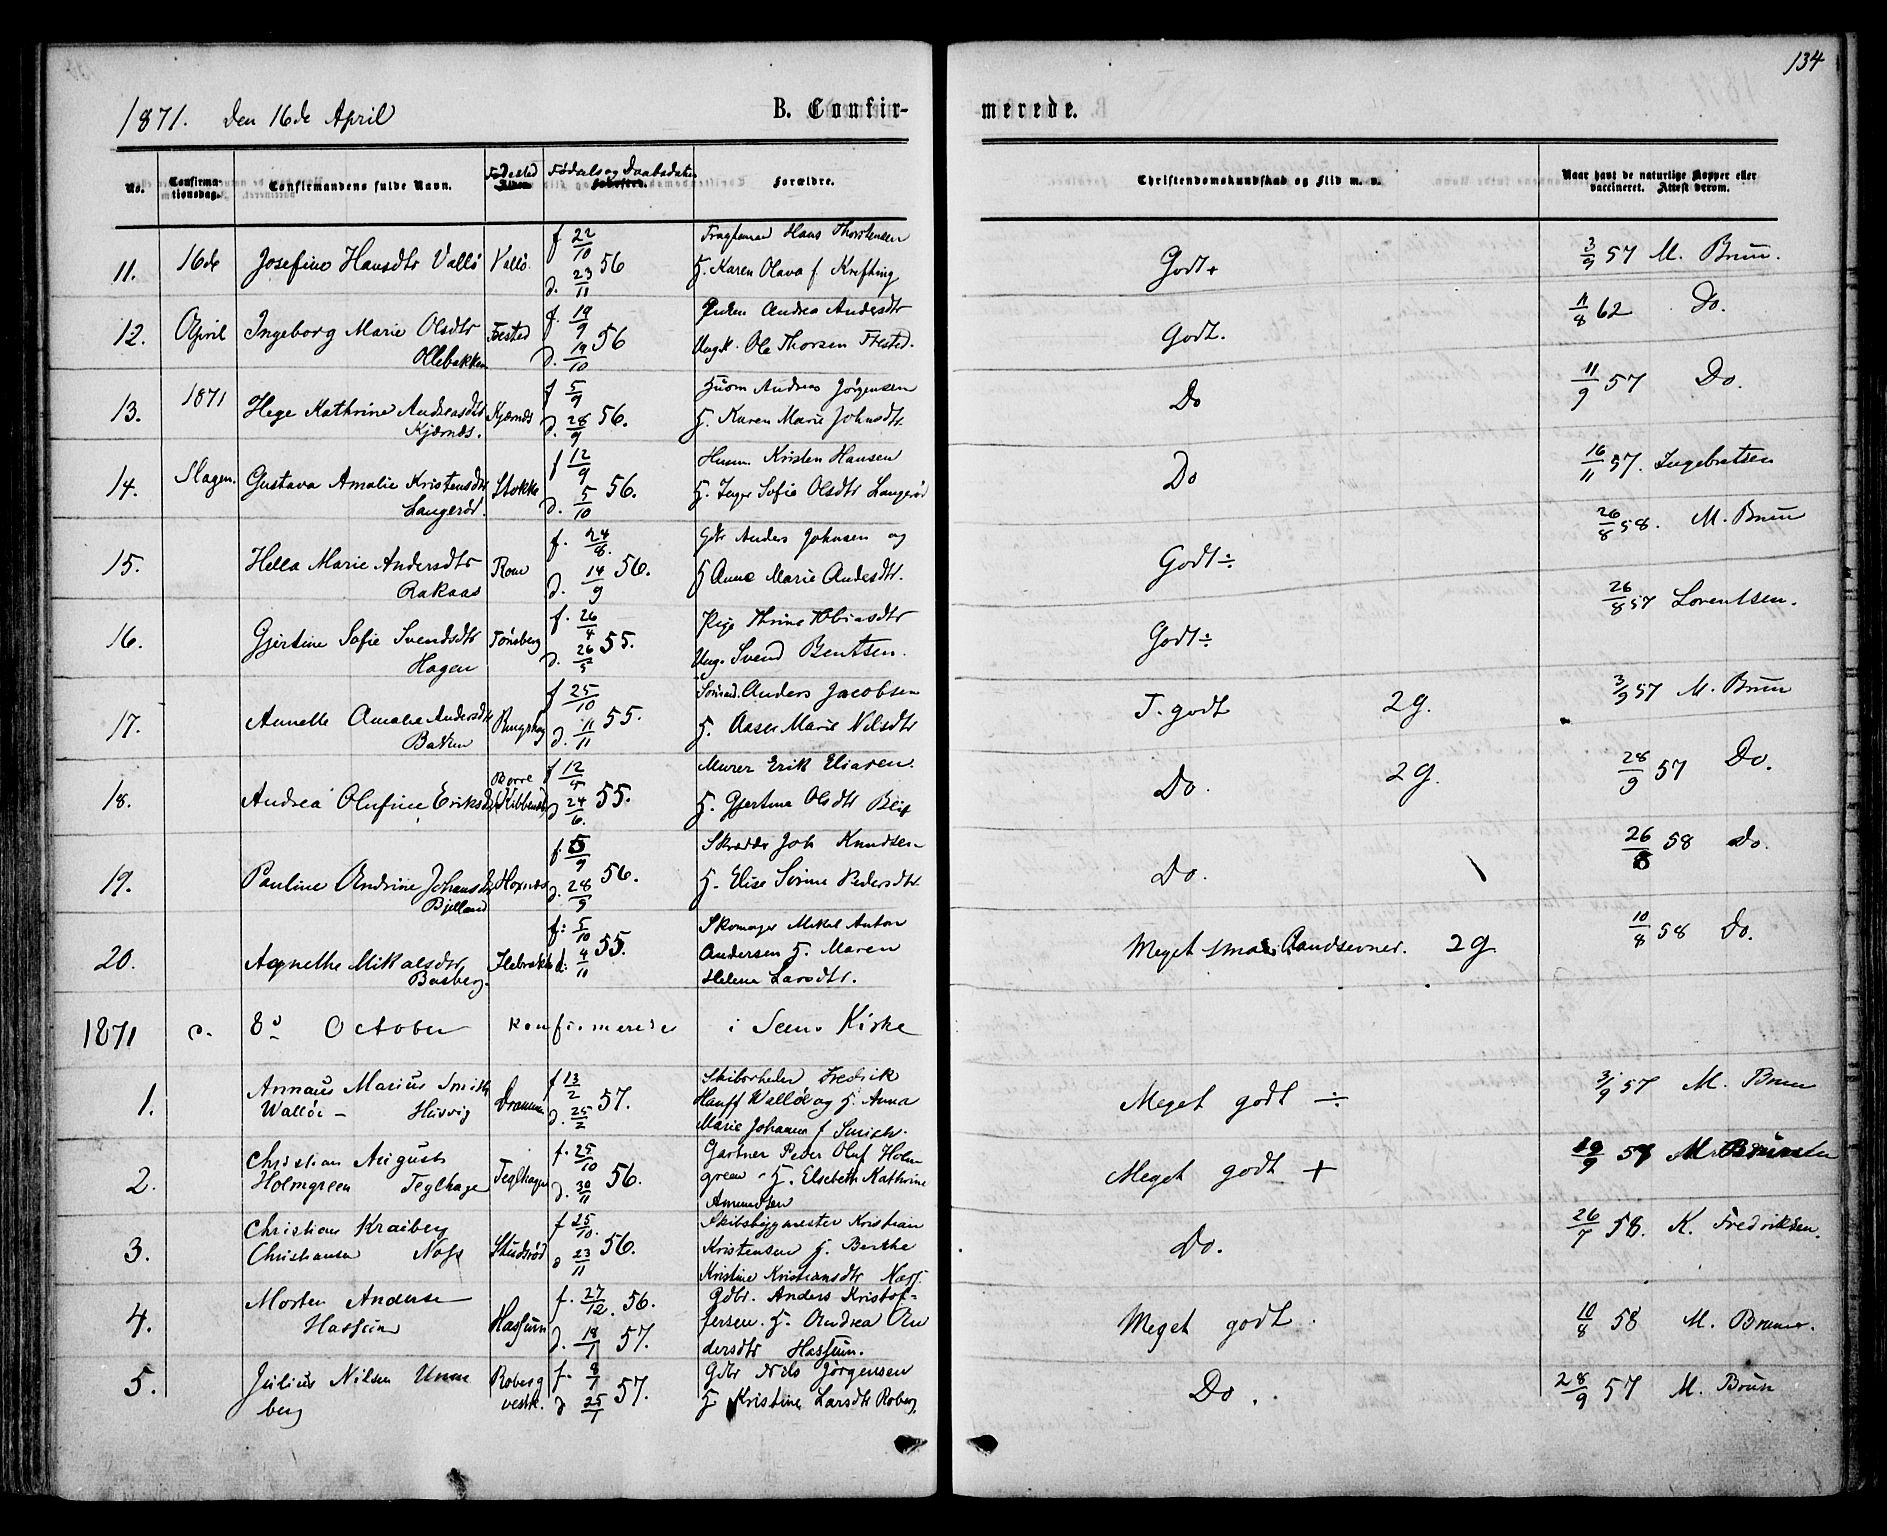 134
1871. Den 16de April B. Confirmerede.
No. Confirmationsdag. Confirmandens fulde Navn. Fødested Fødsels og Daabsdatum Forældre. Christendomskundskab og Flid m. v. Naar havt de naturlige Kopper eller vaccineret. Attest derom.
11. 16de Josefine Hansdtr Vallö Vallö. f 22/10 d. 23/11 56 Hans Thorstensen
H. Karen Olava f. Krefting Godt+ 3/9 57 M. Brun.
12. April Ingeborg Marie Olsdtr f. 19/9 d. 19/10 56 Andrea Andersdtr
Ollebakken Ungk. Ole Thorsen Godt. 11/8 62 Do.
13. 1871 Hege Kathrine Andreasdtr Kjærnes f 5/9 d. 28/9 56. Husm Andreas Jørgensen
Kjærnes. H. Karen Marie Johnsdtr. Do 11/9 57 Do.
14. Slagen. Gustava Amalie Kristensdtr Stokke f 12/9 d. 5/10 56. Husm. Kristen Hansen
Langerød. H. Inger Sofie Olsdtr Langerød Do 16/11 57. Ingebretsen
15. Hella Marie Andersdtr Rom f. 24/8. d. 14/9 56. Gdbr Anders Johnsen og
Rakaas H Anne Marie Andersdtr. Godt÷ 26/8 58. M. Brun
16. Gjertine Sofie Svendsdtr Tönsberg f. 26/4 d. 26/5 55. Pige Thrine Tobiasdtr
Hagen Ung. Svend Bentsen. Godt÷ 26/8 57 Lorentsen.
17. Annette Amalie Andersdtr f 25/10 d. 11/11 55. Sömand. Anders Jacobsen
Bakken H. Aasen Marie Nilsdtr T. godt 2g. 3/9 57 M. Brun
18. Andrea Olufine Eriksdtr Borre f 12/5 d 24/6. 55. Murer Erik Eliasen.
H. Gjertine Olsdtr Do. 2g. 28/9 57 Do.
19. Pauline Andrine Johansdtr f. 5/9 d. 28/9 56. Skrædder Joh Knudsen
Bjelland H. Elise Sörine Pedersdtr. Do. 26/8 58 Do.
20. Agnethe Mikalsdtr f: 5/10 d: 4/11 55. Skomager Mikal Anton
Basberg. Andersen H. Maren
Helene Larsdtr. Meget smaa Aandsevner. 2g 10/8 58 Do.
1871 d. 8de October konfirmerede i Sems Kirke
1. Annæus Marius Smith Drammen f 13/2 d. 25/2 57. Fredrik
Walløe – Hanff Walløe og H. Anna
Marie Johanne f Smith. Meget godt ÷ 3/9 57 M. Brun
2. Christian August Teglhagen f. 25/10 d. 30/11 56. Gartner Peder Oluf Holm
Holmgreen Teglhage green – H. Elsebeth Kathrine
Amundsen Meget godt + 10/9
3. Christian Kraiberg f 25/10. d 23/11 56. Skibsbygmester Kristian
Christiansen Næss Kristensen H. Berthe
Kristine Kristiansdtr Næss. Do. 26/7 58. K. Fredriksen.
4. Morten Andersen Hassum f. 27/12. 56. d. 18/1 57. Gdbr. Anders Kristof-
Hassum fersen. H. Andrea An
dersdtr Hassum. Meget godt. 10/8 58 M. Brun.
5. Julius Nilsen Unne Roberg f. 8/1 d 25/1 57. Gdbr Nils Jörgensen
berg vestk. H Kristine Larsdtr Roberg. Do. 28/9 57 M. Brun